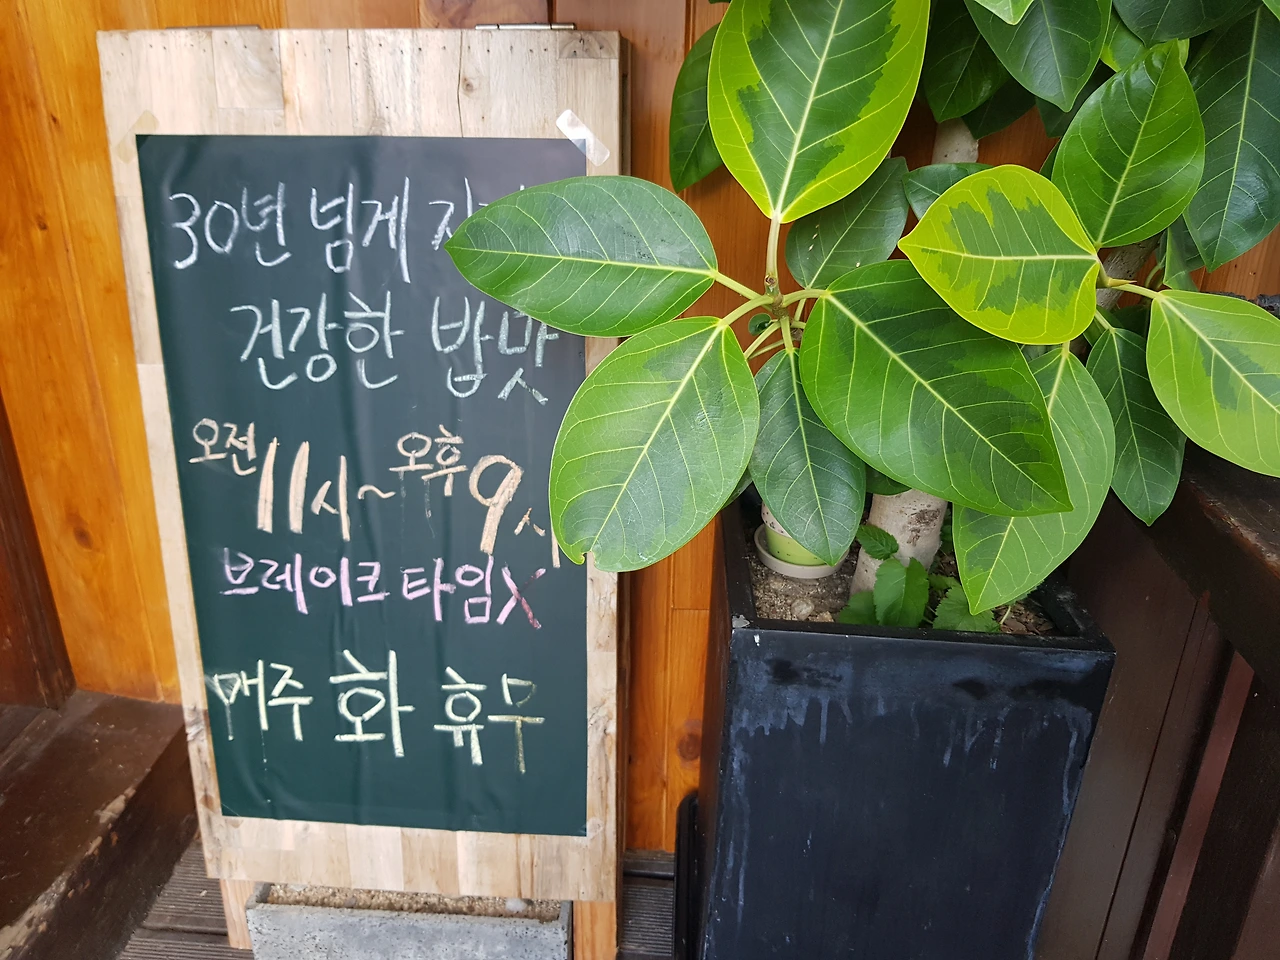 30년 넘게
건강한 밥맛
오전 11시~오후 9시
브레이크 타임 X
매주 화 휴무